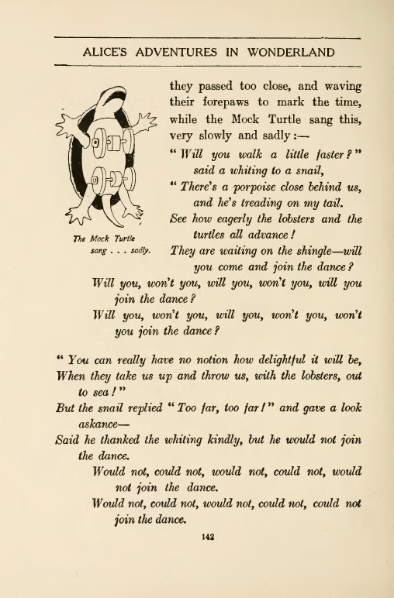 ALICE'S ADVENTURES IN WONDERLAND
they passed too close, and waving
their forepaws to mark the time,
while the Mock Turtle sang this,
very slowly and sadly :—
“ Will you walk a little faster ? ”
said a whiting to a snail,
“ There's a porpoise close behind us,
and he's treading on my tail.
See how eagerly the lobsters and the
turtles all advance !
They are waiting on the shingle—will
you come and join the dance ?
The Mock Turtle
sang . . . sadly.
Will you, won't you, will you, won't you, will you
join the dance ?
Will you, won't you, will you, won't you, won't
you join the dance ?
“ You can really have no notion how delightful it will be,
When they take us up and throw us, with the lobsters, out
to sea ! ”
But the snail replied “ Too far, too far ! ” and gave a look
askance—
Said he thanked the whiting kindly, but he would not join
the dance.
Would not, could not, would not, could not, would
not join the dance.
Would not, could not, would not, could not, could not
join the dance.
142